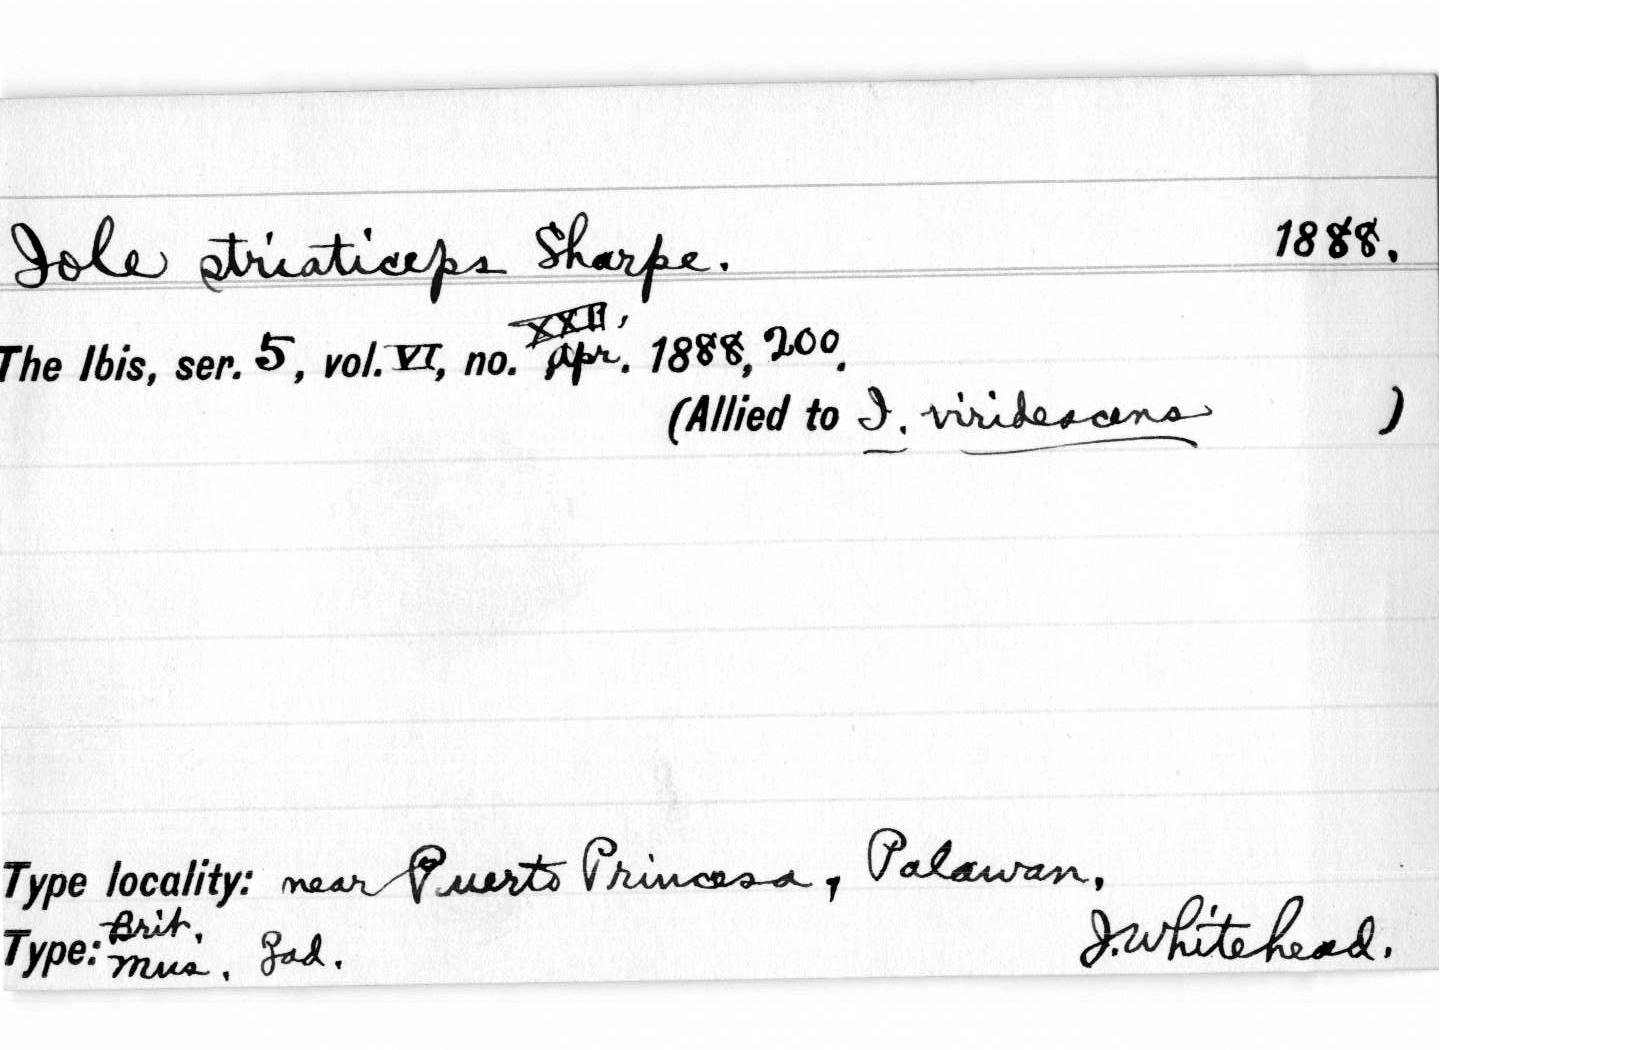 Iole striaticeps Sharpe. 1888.
The Ibis, ser. 5, vol. VI, no. XXII, Apr. 1888, 200.
(Allied to I. viridescens )
Type locality: near Puerto Princesa, Palawan,
Type: Brit. Mus. Gad. J. Whitehead.